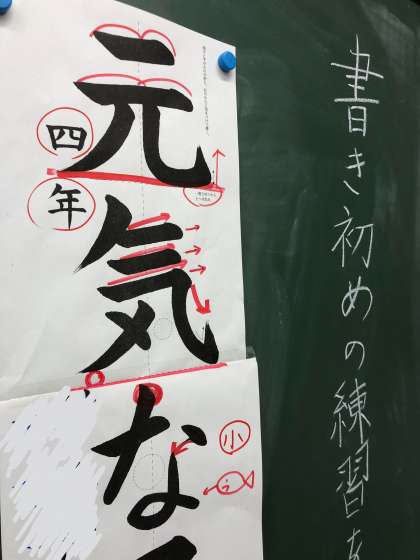 書き初めの練習を
元気な
四年
小